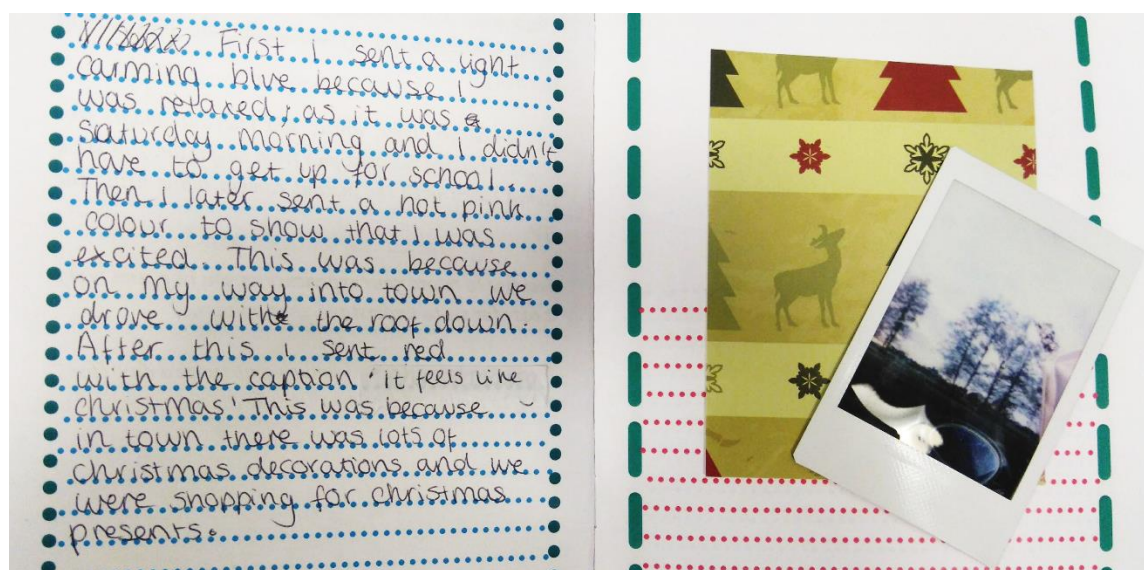 First I sent a light
calming blue because I
was relaxed, as it was
saturday morning and I didn't
have to get up for school.
Then I later sent a hot pink
colour to show that I was
excited. This was because
on my way into town we
drove with the roof down.
After this I sent red
with the caption 'it feels like
christmas' This was because
in town there was lots of
christmas decorations and we
were shopping for christmas
presents.